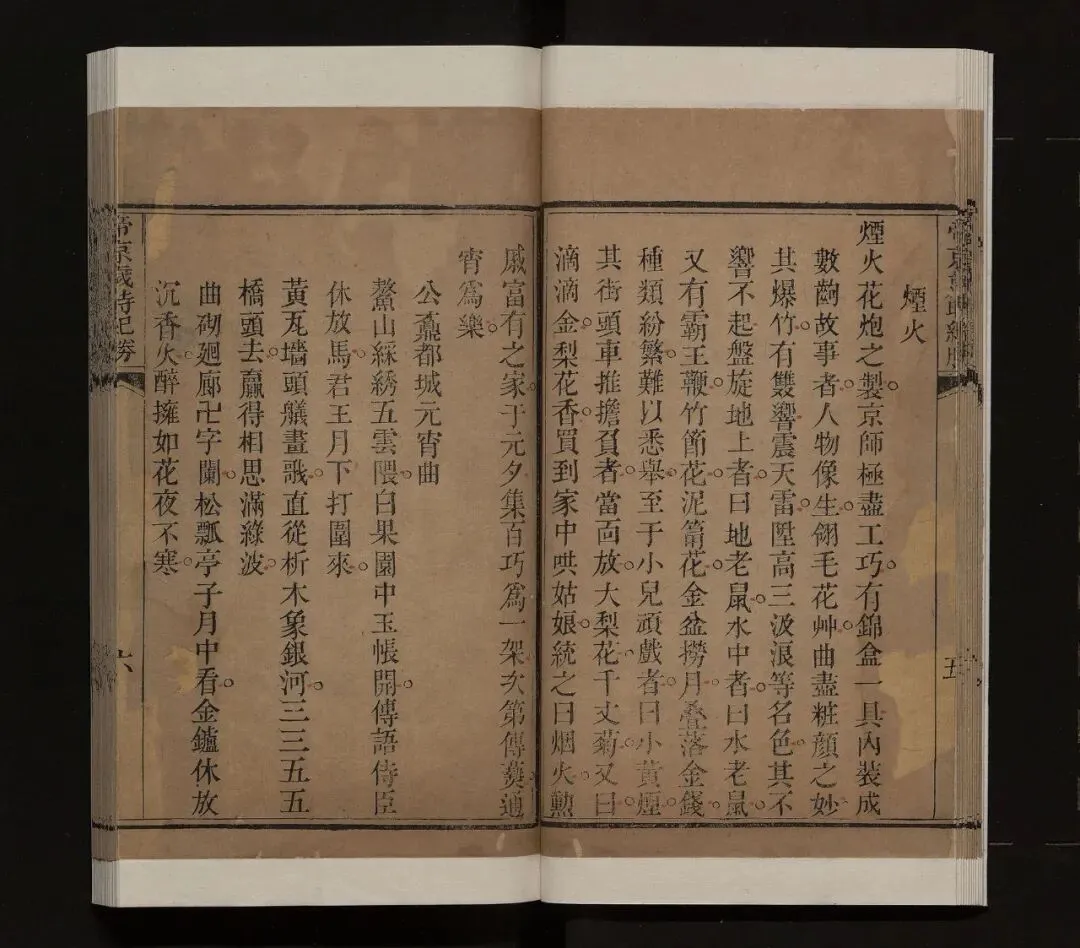 煙火
煙火花炮之製京師極盡工巧有錦盒一具內裝成
數齣故事者人物像生翎毛花艸曲盡粧顏之妙
其爆竹有雙響震天雷陞高三汲浪等名色其不
響不起盤旋地上者曰地老鼠水中者曰水老鼠
又有霸王鞭竹節花泥筩花金盆撈月疊落金錢
種類紛繁難以悉舉至于小兒頑戲者曰小黃煙
其街頭車推擔負者當面放大梨花千丈菊又曰
滴滴金梨花香買到家中哄姑娘統之曰烟火勲
戚富有之家于元夕集百巧爲一架次第傳爇通
宵爲樂
公鼐都城元宵曲
鰲山綵綉五雲隈白果園中玉帳開傳語侍臣
休放馬君王月下打圍來
黃瓦墻頭艤畫戨直從析木象銀河三三五五
橋頭去贏得相思滿綠波
曲砌廻廊卍字闌松瓢亭子月中看金鑪休放
沉香火醉擁如花夜不寒
帝京歲時紀勝
六
五